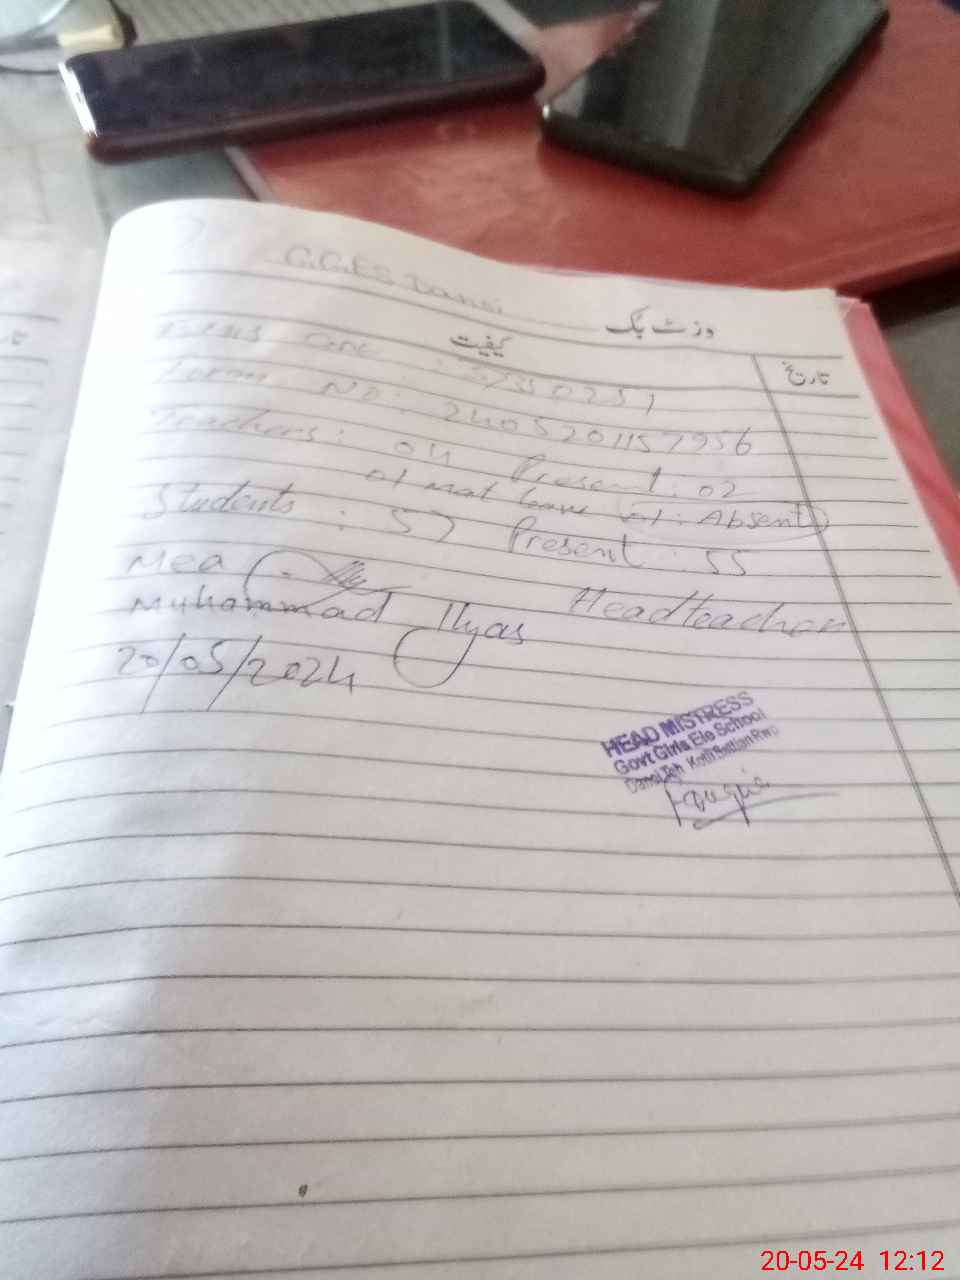 G.G.E.S Danoi
وزٹ بک
کیفیت
تاریخ
No: 2405201157956
Teachers: 04 Present: 02
01 mat leave 01: Absent
Students: 57 Present: 55
Mea Headteacher
Muhammad Ilyas
20/05/2024
HEAD MISTRESS
Govt Girls Ele School
Danoi Teh Kotli Sattian Rwp
20-05-24 12:12